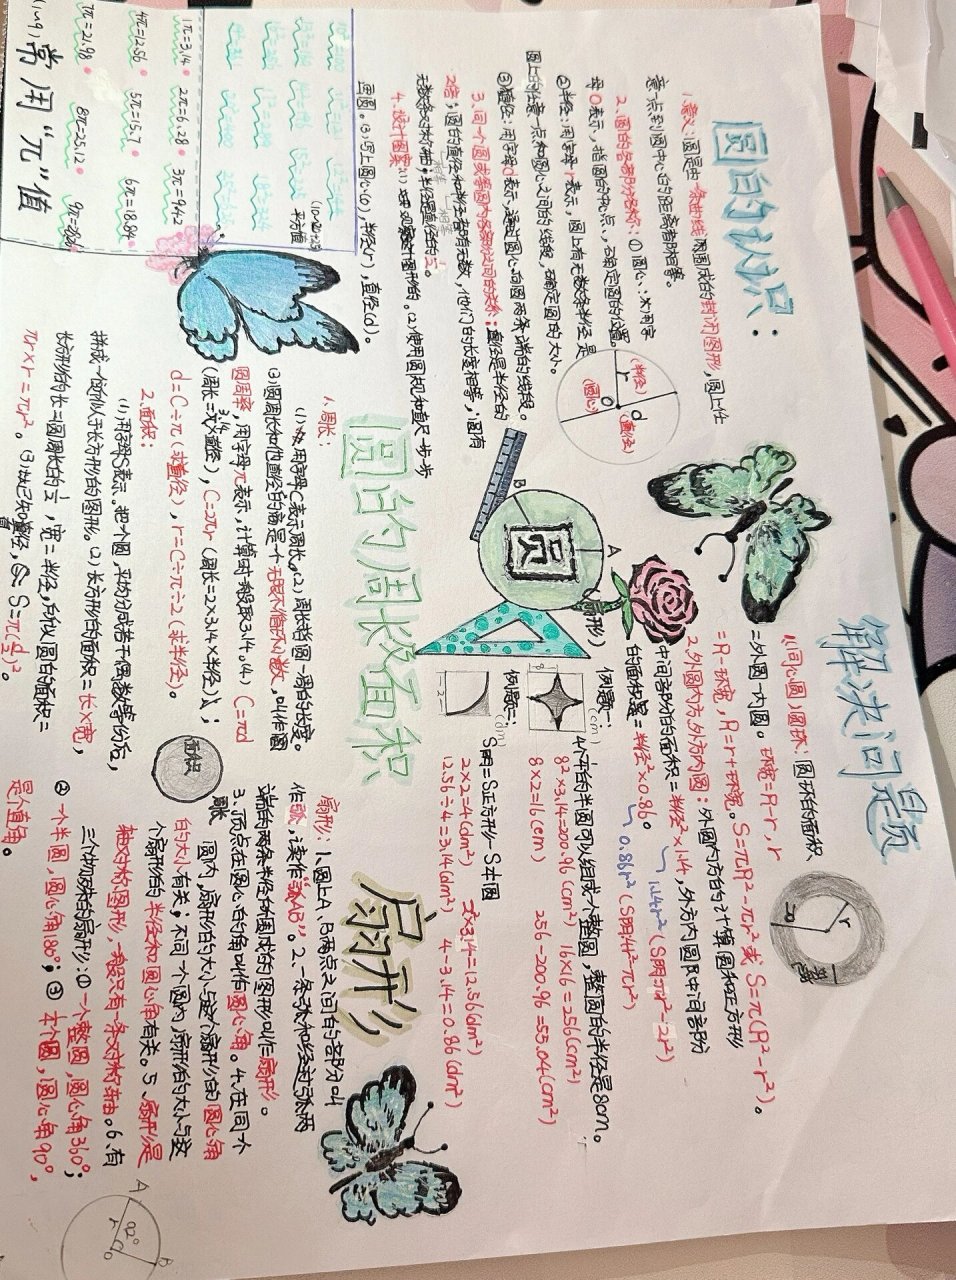 圆的认识：
1.意义：圆是由一条曲线围成的封闭图形，圆上任
意一点到圆中心的距离都相等。
2.圆的各部分名称：①圆心：一般用字
母O表示，指圆的中心点，确定圆的位置。
②半径：用字母r表示，圆上有无数条半径是
圆上的任意一点和圆心之间的线段，确定圆的大小。
③直径：用字母d表示，通过圆心，向圆两条端的线段。
3.同一个圆或等圆内各部分之间的关系：直径是半径的
2倍；圆的直径和半径都有无数，他们的长度相等，圆有
无数条对称轴；半径是直径的½。
4.设计图案：(1)观察图形的。(2)使用圆规和直尺一步步
画圆。(3)写上圆心(o)，半径(r)，直径(d)。
(半径)
r
d
O
(圆心)
(直径)
常用“π”值
(1~9)
1π=3.14
2π=6.28
3π=9.42
4π=12.56
5π=15.7
6π=18.84
7π=21.98
8π=25.12
平方值
B
A
圆
(扇形)
圆的周长及面积
1.周长：
(1)用字母C表示周长。(2)周长指圆一周的长度。
(3)圆周长和他直径的商是一个无限不循环小数，叫作圆
圆周率，用字母π表示，计算时一般取3.14。(4) C=πd
3.14
(周长=π×直径)，C=2πr (周长=2×3.14×半径)；
d=C÷π(求直径)，r=C÷π÷2(求半径)。
2.面积：
(1)用字母S表示。把一个圆，平均分成若干偶数等份后，
拼成一个近似于长方形的图形。(2)长方形的面积=长×宽，
长方形的长=圆周长的½，宽=半径，所以圆的面积=
πr×r=πr²。(3)如已知直径，S=π(d/2)²。
面积
周长
解决问题
1.(同心圆)圆环：圆环的面积
=外圆-内圆。环宽=R-r，r
=R-环宽，R=r+环宽。S=πR²-πr²或 S=π(R²-r²)。
2.外圆内方，外方内圆：外圆内方的计算圆和正方形
中间部分的面积=半径²×1.14，外方内圆中间部分
的面积是=半径²×0.86。
1.14r² (S阴=πr²-2r²)
0.86r² (S阴=4r²-πr²)
R
r
环宽
例题一：
(cm)
4个半的半圆可以组成一个整圆，整圆的半径是8cm。
8²×3.14=200.96(cm²)
16×16=256(cm²)
8×2=16(cm)
256-200.96=55.04(cm²)
例题二：
(dm)
S阴=S正方形-S¼圆
2×2=4(dm²)
2²×3.14=12.56(dm²)
12.56÷4=3.14(dm²)
4-3.14=0.86(dm²)
扇形
扇形：1.圆上A、B两点之间的部分叫
作弧，读作“弧AB”。2.一条弧和经过弧两
端的两条半径所围成的图形叫作扇形。
3.顶点在圆心的角叫作圆心角。4.在同一个
圆内，扇形的大小与这个扇形的圆心角
的大小有关；不同一个圆内，扇形的大小与这
个扇形的半径和圆心角有关。5.扇形是
轴对称图形，一般只有一条对称轴。6.有
三个特殊的扇形：①一个整圆，圆心角360°；
②一个半圆，圆心角180°；③¼个圆，圆心角90°，
是个直角。
A
r
O
B